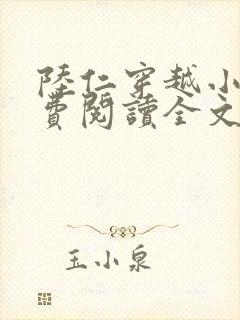 陸仁穿越小
費閱讀全文
玉小泉